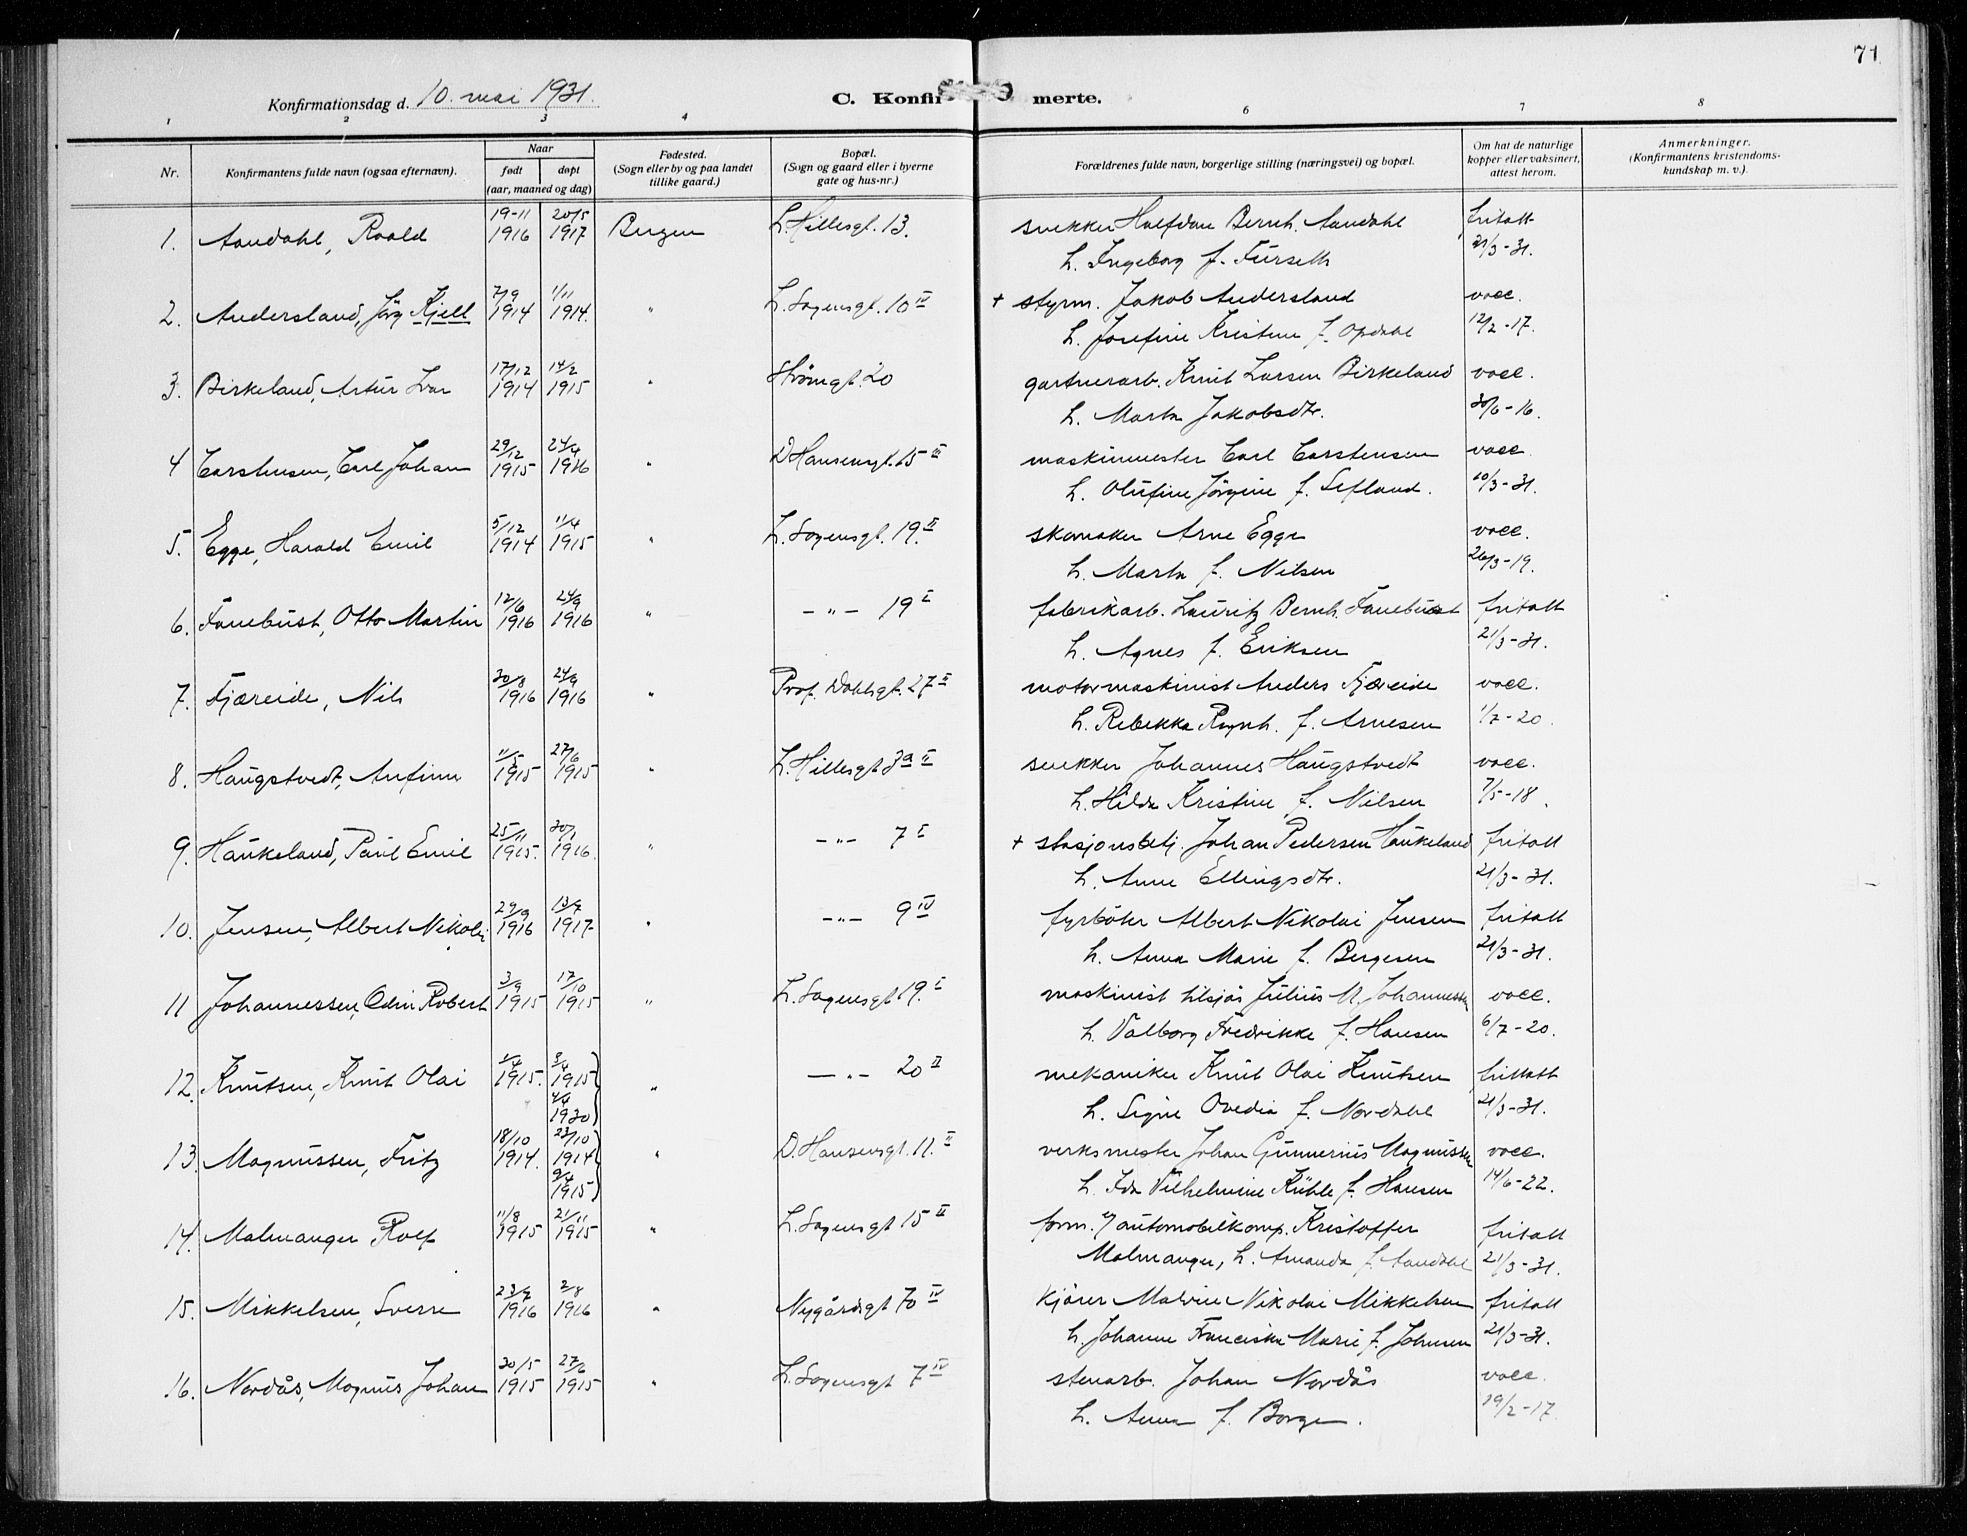 71
Konfirmationsdag d. 10. mai 1931.
C. Konfirmerte.
1 2 3 4 5 6 7 8
Nr. Konfirmantens fulde navn (ogsaa efternavn). Naar født døpt (aar, maaned og dag) Fødested. (Sogn eller by og paa landet tillike gaard.) Bopæl. (Sogn og gaard eller i byerne gate og hus-nr.) Forældrenes fulde navn, borgerlige stilling (næringsvei) og bopæl. Om hat de naturlige kopper eller vaksinert, attest herom. Anmerkninger. (Konfirmantens kristendoms-kundskap m. v.).
1. Aandahl, Roald 19-11 1916 20/5 1917 Bergen L. Hillesgt. 13. snekker Halfdan Bernh. Aandahl fritatt
h. Ingeborg f. Furseth 21/3-31.
2. Andersland, Jörg Kjell 7/9 1914 1/11 1914. " L. Sagensgt. 10 IV + styrm. Jakob Andersland vacc.
h. Josefine Kristine f. Opdahl 12/2-17.
3. Birkeland, Artur Ivar 17/12 1914 14/2 1915 " Strömgt. 20 gartnerarb. Knut Larsen Birkeland vacc.
h. Marta Jakobsdtr. 30/6-16.
4 Carstensen, Carl Johan 29/12 1915 24/4 1916 " D Hansensgt. 15 III maskinmester Carl Carstensen vacc.
h. Olufine Jörgine f. Sefland. 20/3-31.
5. Egge, Harald Emil 5/12 1914 11/4 1915 " L. Sagensgt. 19. II skomaker Arne Egge vacc.
h. Marta f. Nilsen 26/3-19.
6. Fanebust, Otto Martin 12/6 1916 24/9 1916 " — " — 19 I fabrikarb. Lauritz Bernh. Fanebust fritatt
h. Agnes f. Eriksen 21/3-31.
7. Fjæreide, Nils 30/8 1916 24/9 1916 " Prof. Dahlsgt. 27 II motormaskinist Anders Fjæreide vacc.
h. Rebekka Ragnh. f. Arnesen 1/7-20.
8. Haugstvedt, Anfinn 11/5 1915 27/6 1915 " L. Hillesgt 3a II snekker Johannes Haugstvedt vacc.
h. Hilda Kristine f. Nilsen 7/5-18.
9. Haukeland, Paul Emil 25/11 1915. 30/1 1916. " — " — 7 I + stasjonsbetj. Johan Pedersen Haukeland fritatt
h. Anne Ellingsdtr. 21/3-31.
10. Jensen, Albert Nikolai 29/9 1916 13/7 1917 " — " — 9 IV fyrböter Albert Nikolai Jensen fritatt
h. Anna Marie f. Bergesen 21/3-31.
11 Johannessen, Odin Robert 3/9 1915 17/10 1915 " L. Sagensgt 19. I maskinist tilsjös Julius M. Johannessen vacc.
h. Valborg Fredrikke f. Hansen 6/7-20.
12. Knutsen, Knut Olai 1/4 1915. 3/4 1915 4/4 1920 " — " — 20 II mekaniker Knut Olai Knutsen frittatt
h. Signe Ovedia f. Nordahl 21/3-31.
13. Magnussen, Fritz 18/10 1914. 23/10 1914 9/4 1915 " D. Hansensgt. 11. II verksmester Johan Gunnerius Magnussen vacc.
h. Ida Vilhelmine Kühle f. Hansen 14/6-22.
14. Malmanger Rolf 11/8 1915 21/11 1915 " L. Sagensgt 15 II form. v/ automobilkomp. Kristoffer fritatt
Malmanger, h. Amanda f. Aandahl 21/3-31.
15. Mikkelsen, Sverre 23/7 1916 2/8 1916 " Nygårdsgt 70 IV kjörer Malvin Nikolai Mikkelsen fritatt
h. Johanne Franciska Marie f. Johnsen 21/3-31.
16. Nordås, Magnus Johan 30/5 1915 27/6 1915 " L. Sagensgt 7 IV stenarb. Johan Nordås vacc.
h. Anna f. Borge. 19/2-17.